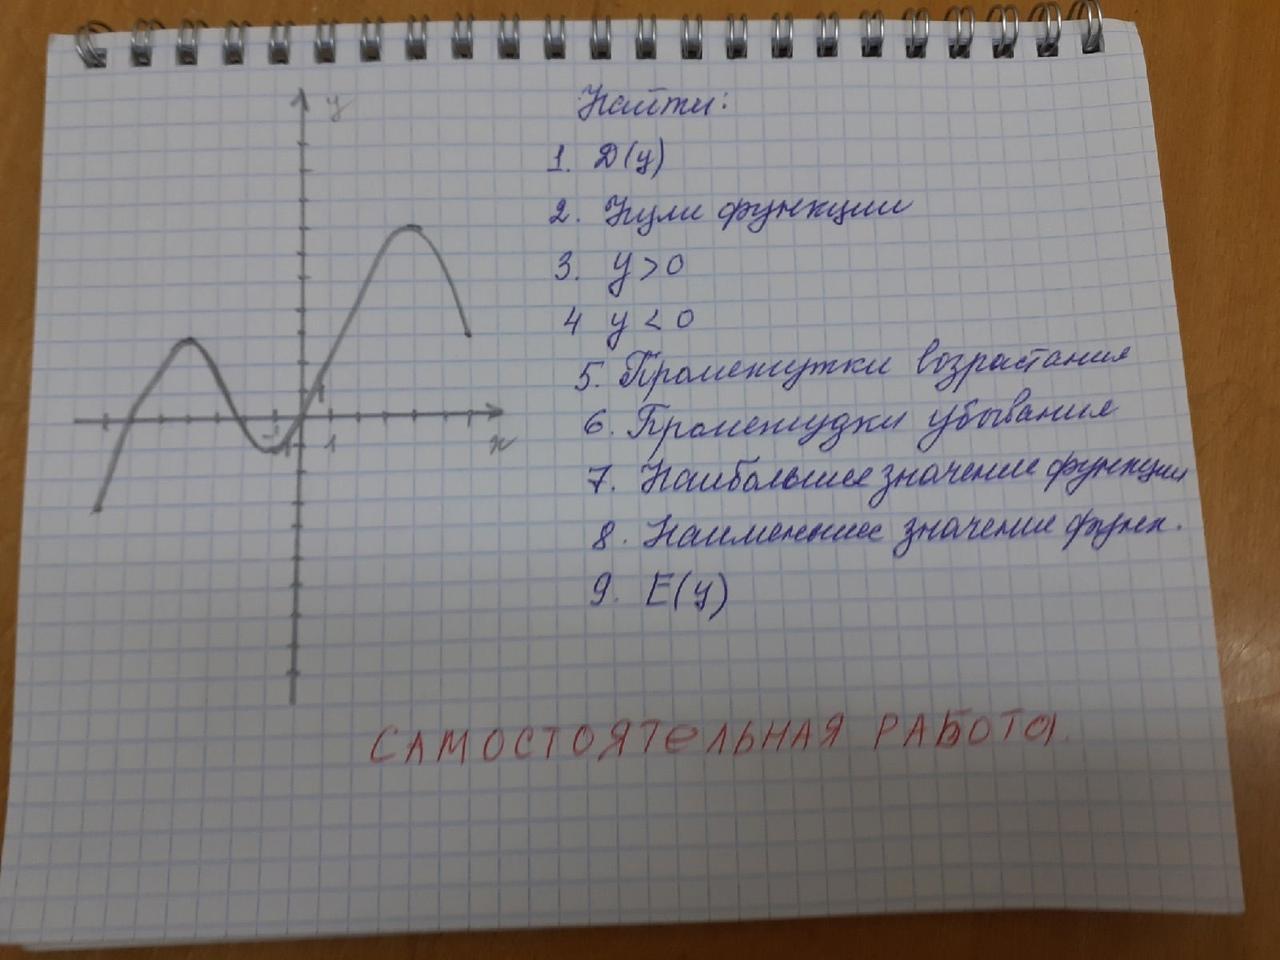 y
x
1
1
Найти:
1. D(y)
2. Нули функции
3. y > 0
4 y < 0
5. Промежутки возрастания
6. Промежудки убывания
7. Наибольшее значение функции
8. Наименьшее значение функ.
9. E(y)
САМОСТОЯТеЛЬНАЯ РАБОТА.